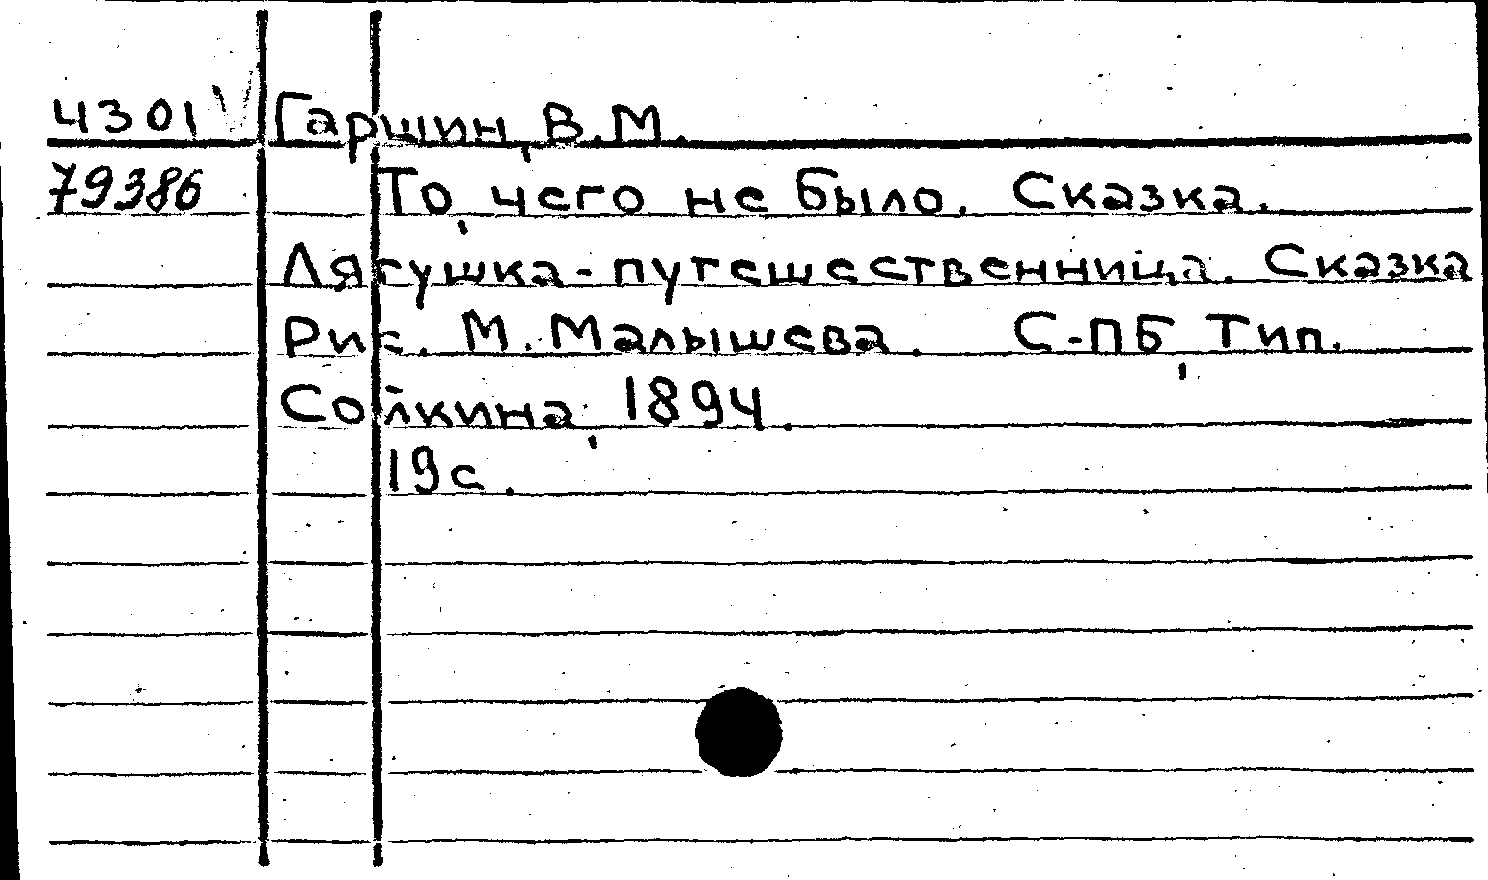 4301 V Гаршин, В.М.
79386 То, чего не было. Сказка.
Лягушка-путешественница. Сказка
Рис. М. Малышева. С-ПБ, Тип.
Сойкина, 1894.
19с.